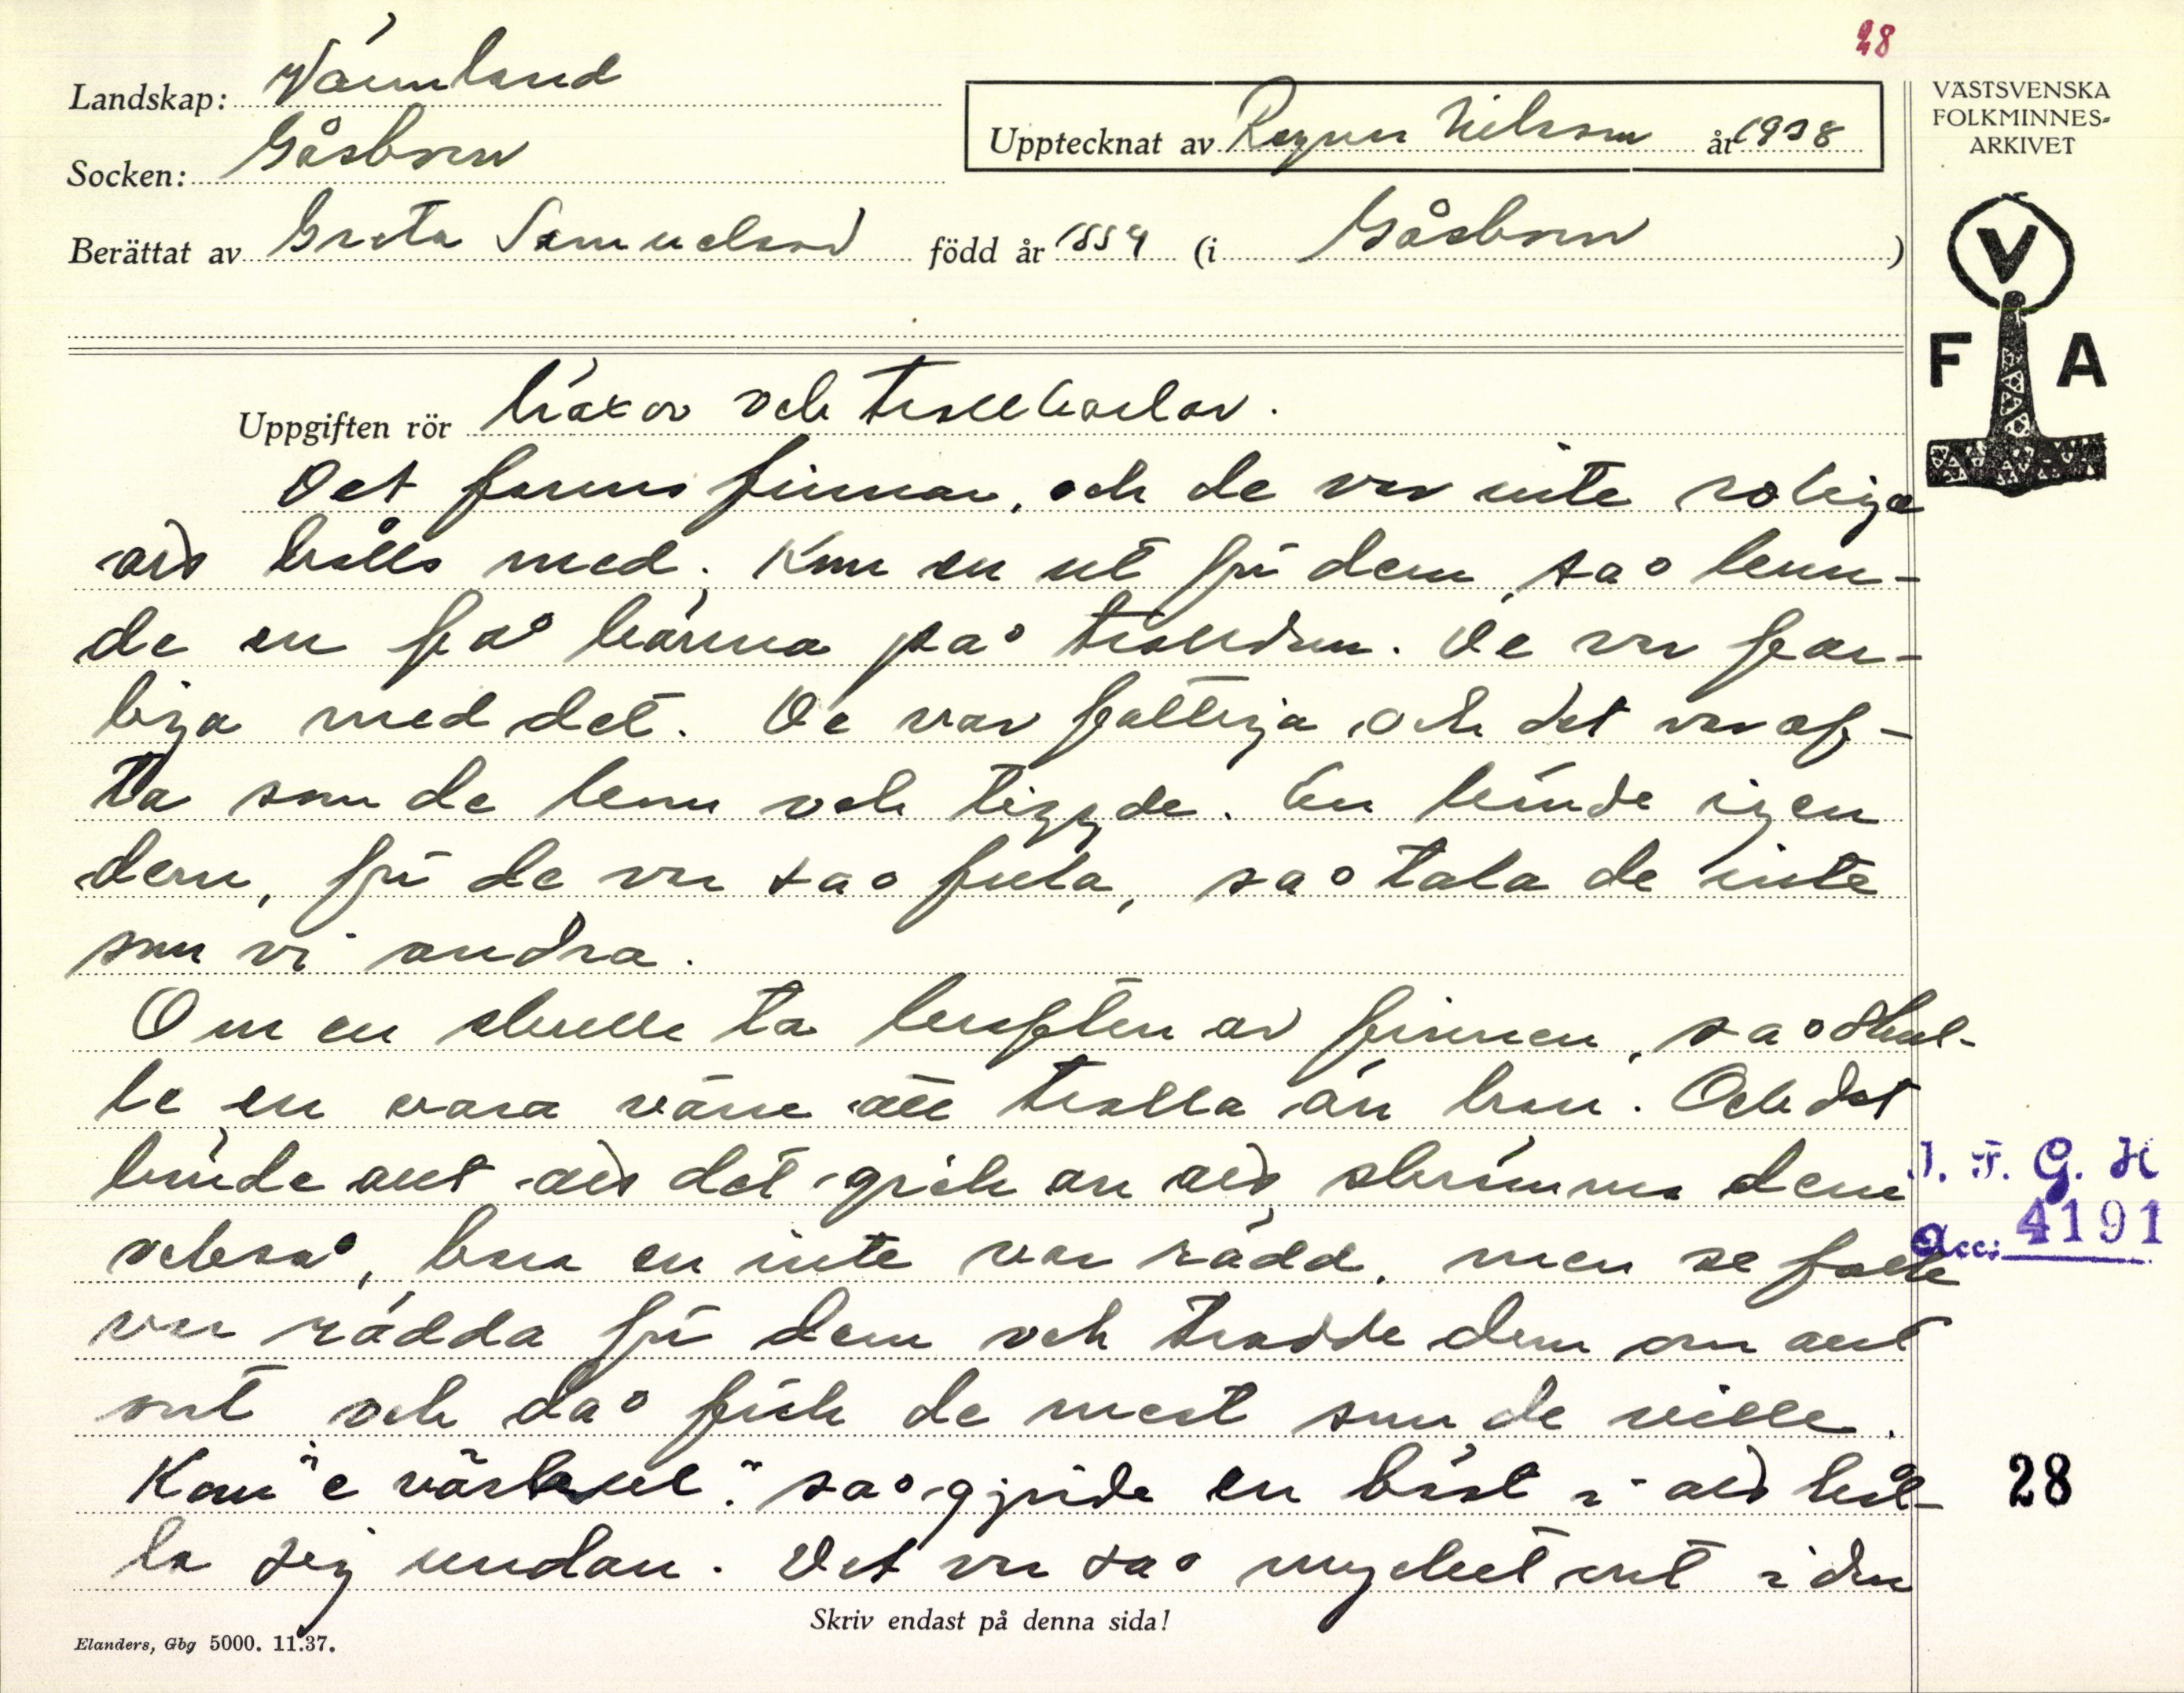 28
Landskap: Värmland
Socken: Gåsborn
Upptecknat av Ragnar Nilsson år 1938
Berättat av Greta Samuelsson född år 1854 (i Gåsborn)
VÄSTSVENSKA
FOLKMINNES-
ARKIVET
V
F A
Uppgiften rör Häxor och trollkarlar.
Det fanns finnar, och de var inte roliga
att hålls med. Kom en ut för dem, så kun-
de en få känna på trolldom. De var far-
liga med det. De var fattiga och det var of-
ta som de kom och tiggde. En kände igen
dem, för de var så fula, så tala de inte
som vi andra.
Om en skulle ta kraften av finnen, så skul-
le en vara värre att trolla än han. Och det
hände allt att det gick an att skrämma dem
också, bara en inte var rädd, men se folk
var rädda för dem och trodde dem om allt
ont och då fick de mest som de ville.
Kom "e värkäel" så gjorde en bäst i att hål-
la sej undan. Det var så mycket ont i den
I. F. G. H
Acc: 4191
28
Skriv endast på denna sida!
Elanders, Gbg 5000. 11.37.